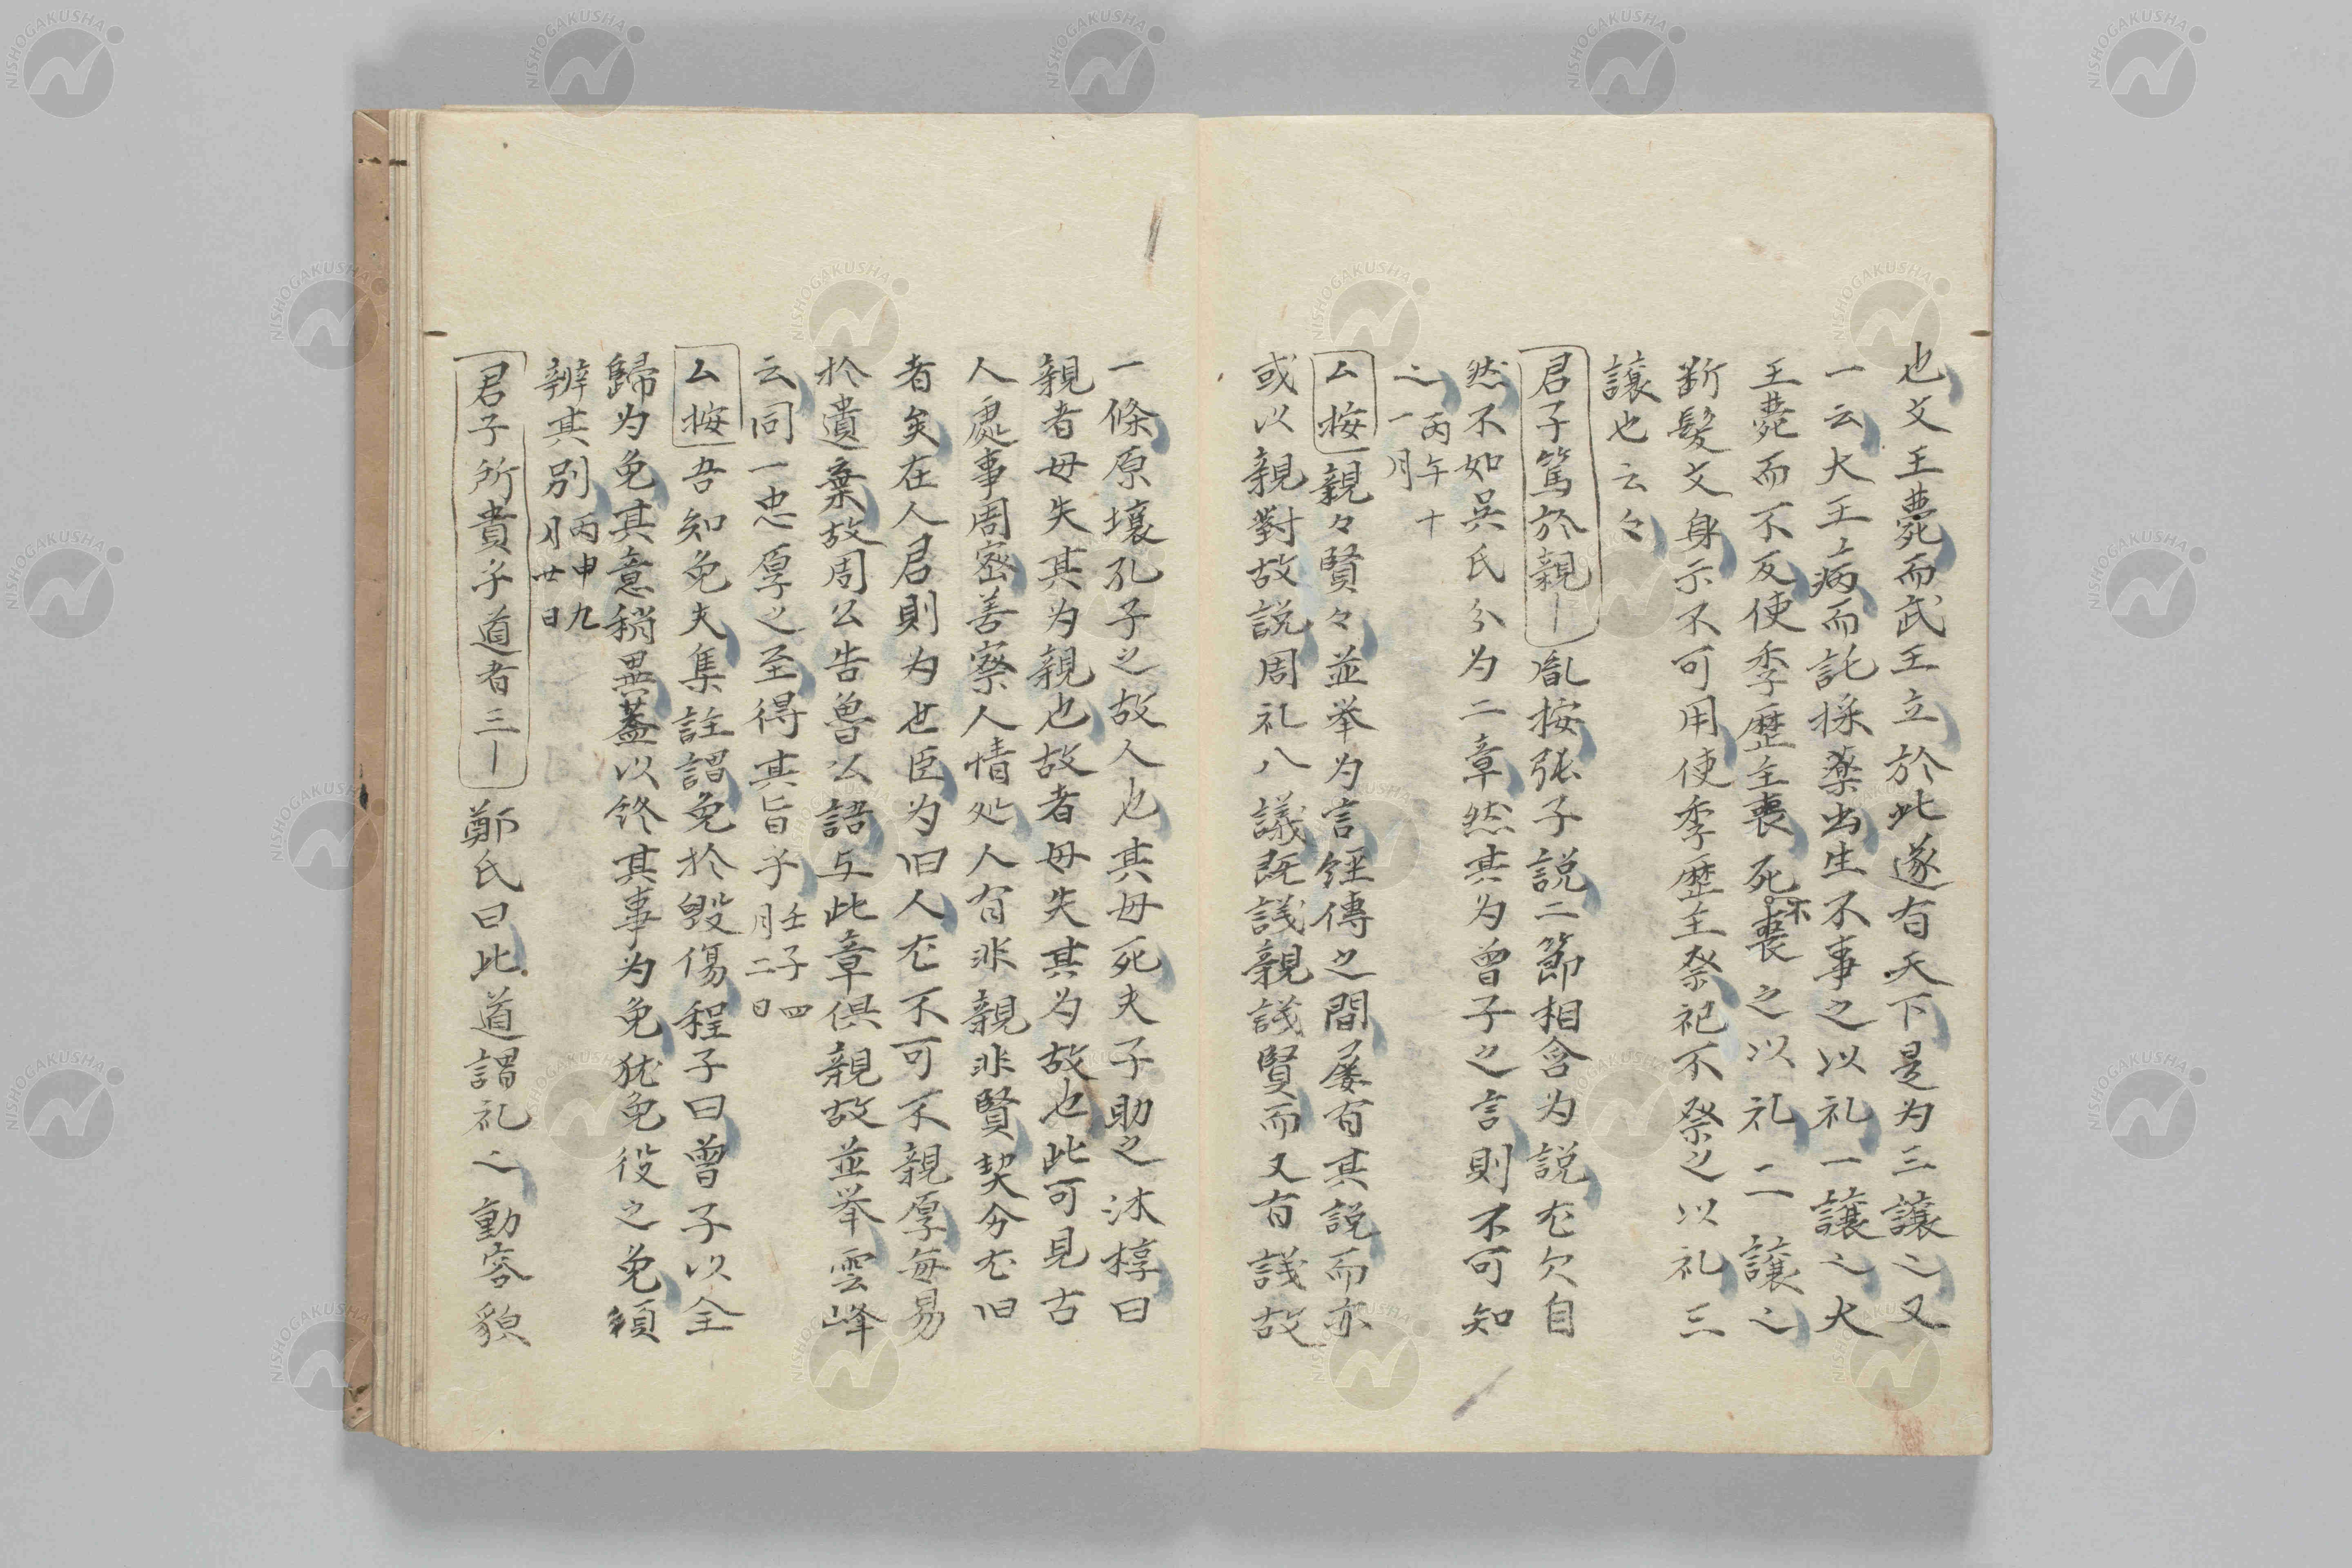 也文王薨而武王立於此遂有天下是为三讓之又
一云大王病而託採藥出生不事之以礼一讓之大
王薨而不反使季歴主喪死不喪之以礼二讓之
断髮文身示不可用使季歴主祭祀不祭之以礼三
讓也云々
君子篤於親｜胤按張子説二節相含为説冘欠自
然不如吳氏分为二章然其为曾子之言則不可知
之丙午十一月
厶按親々賢々並举为言経傳之間屡有其説而亦
或以親對故説周礼八議既議親議賢而又有議故
一條原壤孔子之故人也其母死夫子助之沐椁曰
親者毋失其为親也故者毋失其为故也此可見古
人處事周密善察人情処人有非親非賢契分冘旧
者矣在人君則为世臣为旧人冘不可不親厚每易
於遺棄故周公告魯公語与此章俱親故並举雲峰
云同一忠厚之至得其旨乎壬子四月二日
厶按吾知免夫集註謂免於毀傷程子曰曾子以全
歸为免其意稍異蓋以終其事为免犹免役之免須
辨其別丙申九月廿日
君子所貴乎道者三｜鄭氏曰此道謂礼之動容貌
NISHOGAKUSHA